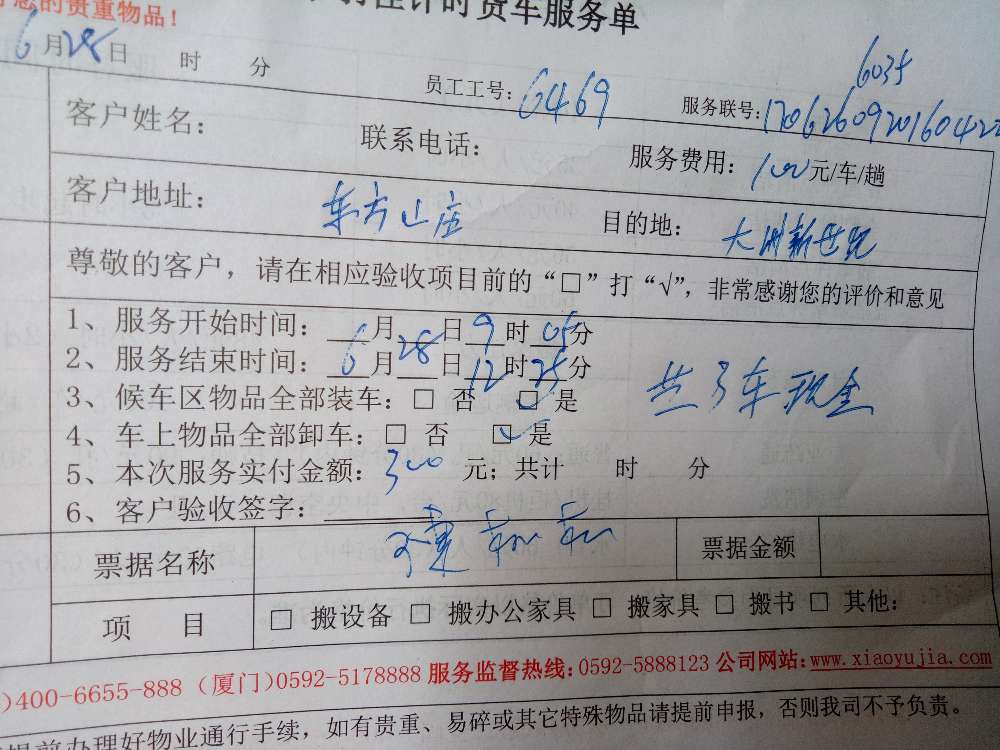 您的贵重物品！
计时货车服务单
6月28日 时 分
员工工号：6469
6035
服务联号：170626092016042
客户姓名： 联系电话： 服务费用：100元/车/趟
客户地址：东方山庄 目的地：大洲新世纪
尊敬的客户，请在相应验收项目前的“□”打“√”，非常感谢您的评价和意见
1、服务开始时间：6月28日9时05分
2、服务结束时间：6月28日12时25分
3、候车区物品全部装车：□ 否 ☑ 是
共3车现金
4、车上物品全部卸车：□ 否 ☑ 是
5、本次服务实付金额：300 元；共计 时 分
6、客户验收签字：
票据名称 票据金额
项 目 □ 搬设备 □ 搬办公家具 □ 搬家具 □ 搬书 □ 其他：
)400-6655-888（厦门)0592-5178888 服务监督热线：0592-5888123 公司网站：www.xiaoyujia.com
提前办理好物业通行手续，如有贵重、易碎或其它特殊物品请提前申报，否则我司不予负责。